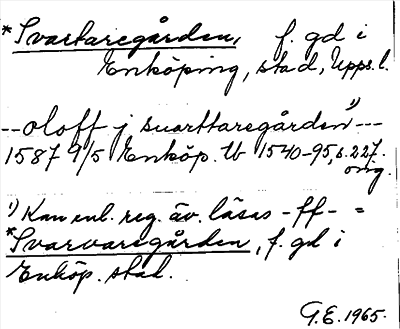 *Svartaregården, f. gd i
Enköping, stad, Upps. l.
-- oloff j suarttaregården 1) ---
1587 9/5 Enköp. tb 1540-95, s. 227.
orig.
1) Kan enl. reg. äv. läsas -ff- =
*Svarvaregården, f. gd i
Enköp. stad.
G.E. 1965.